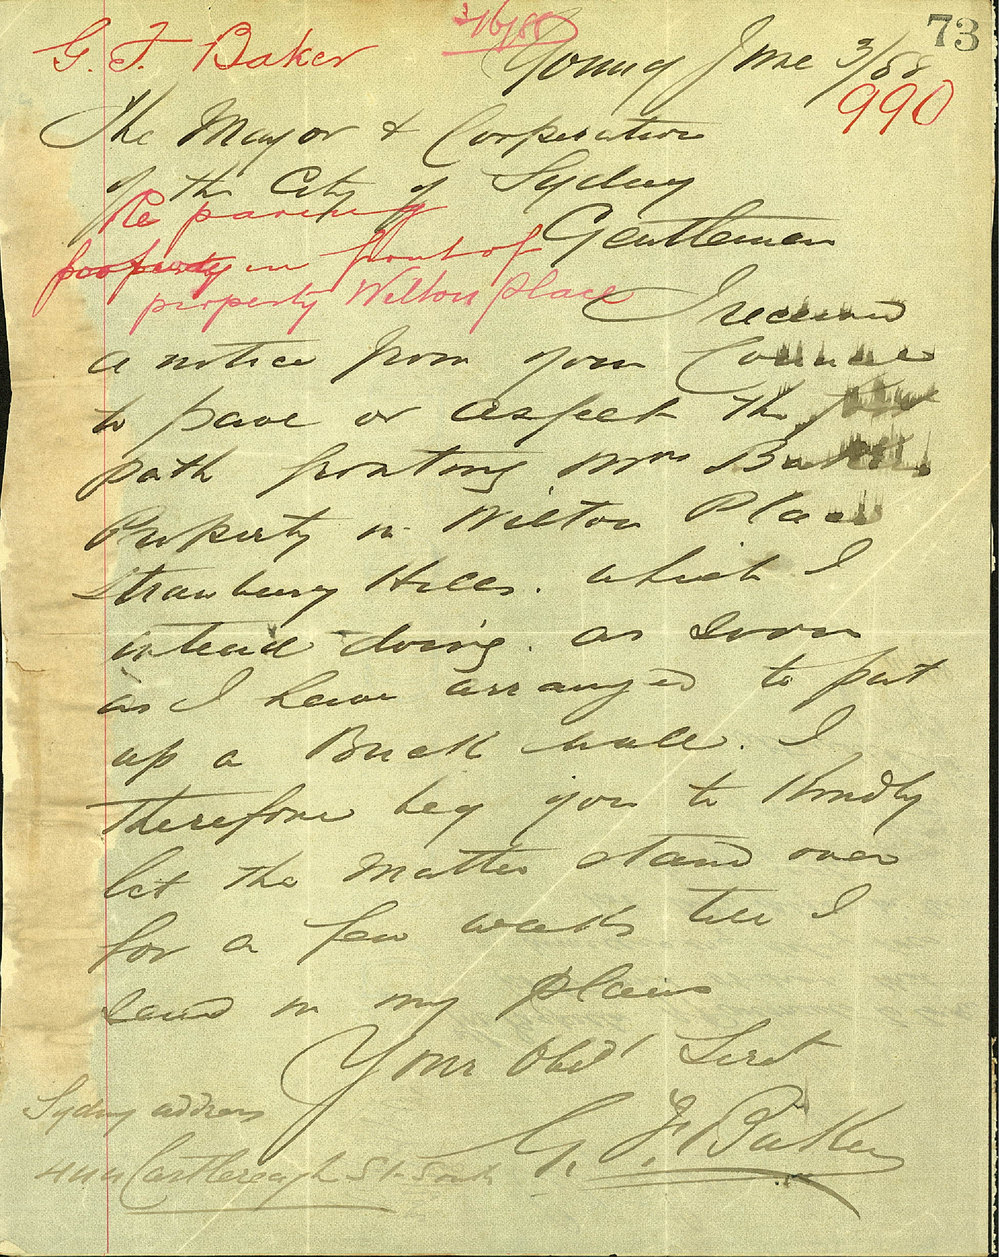 73
4/6/88
G. F. Baker
Young June 3/88
990
The Mayor & Cooperation
of the City of Sydney
Re paveing
in front of
property Wilton Place
Gentlemen
I received
a notice from your Counce
to pave or aspect the foot
path fronting Mrs Bakers
Property in Wilton Place
Strawbury Hills. which I
intend doing. as soon
as I have arranged to put
up a Brick wall. I
therefore beg you to Kindly
let the Matter stand over
for a few weeks till I
send in my plans
Your Obed Servt
G. F. Baker
Sydney address
Castlereagh St South